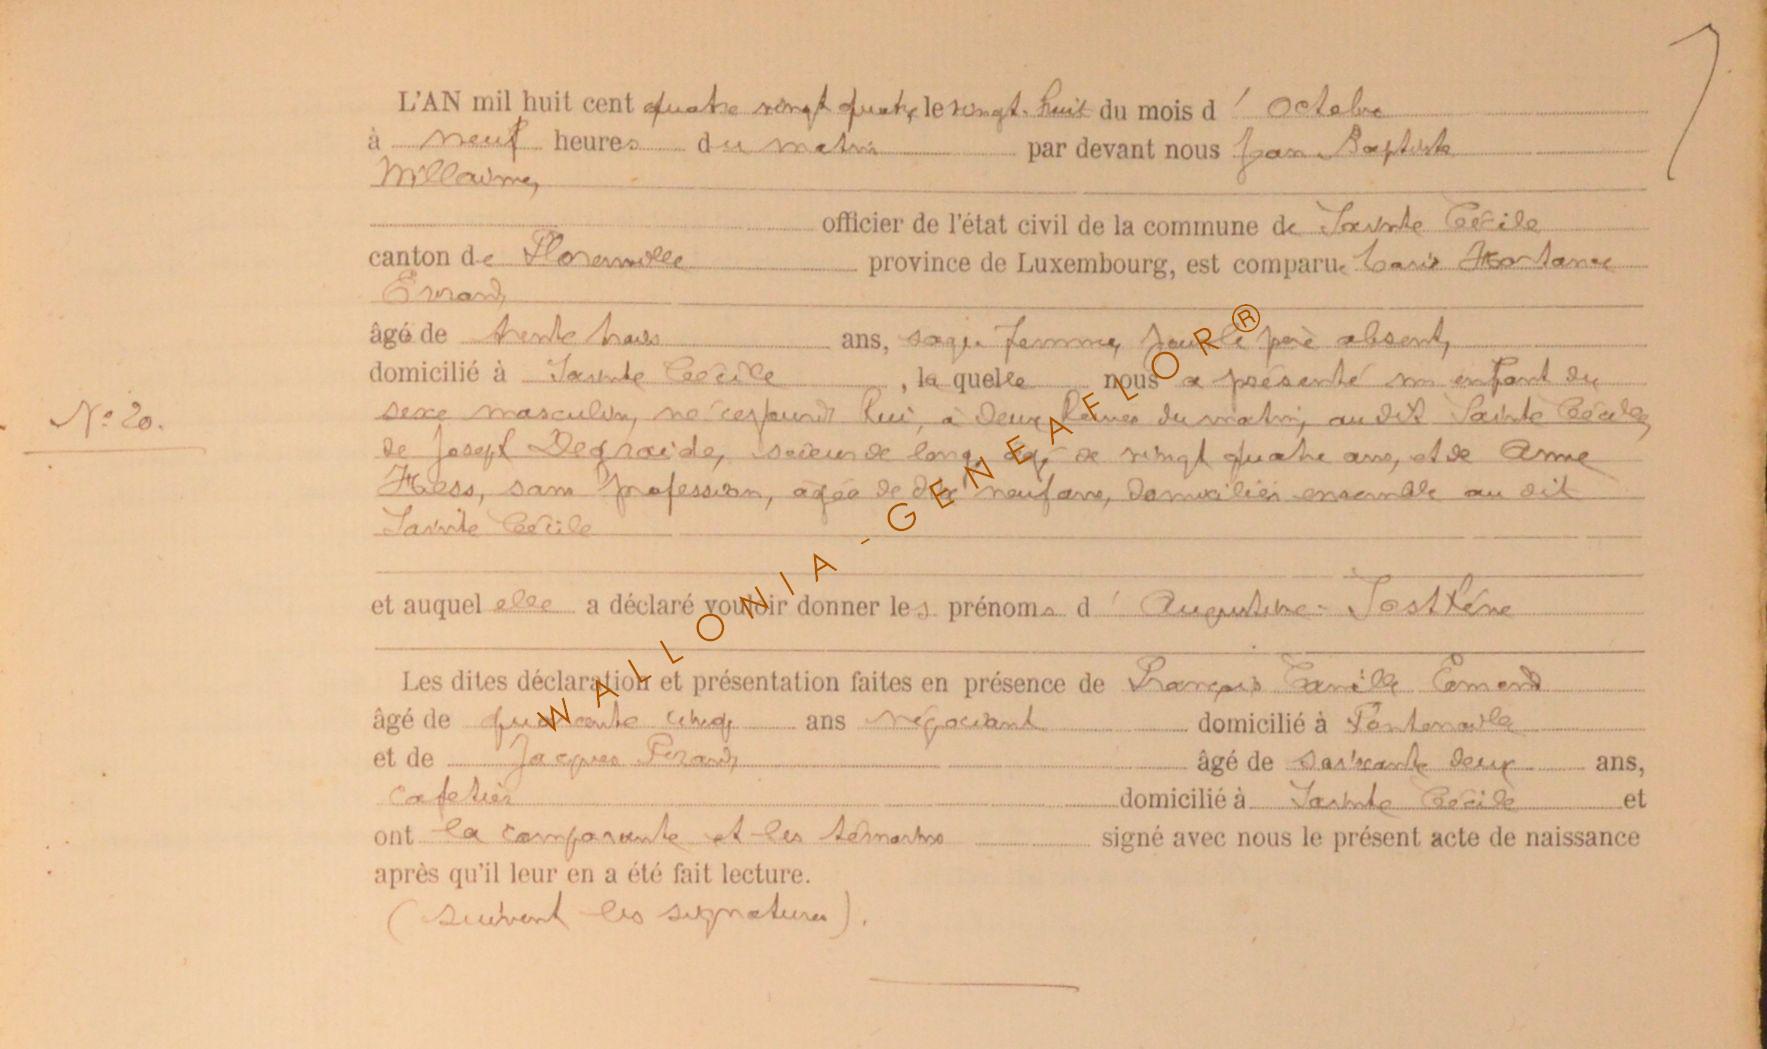 L'AN mil huit cent quatre vingt quatre, le vingt-huit du mois d' Octobre
à neuf heures du matin par devant nous Jean Baptiste
Willaime,
officier de l'état civil de la commune de Sainte Cécile
canton de Florenville province de Luxembourg, est comparue Marie Hortance
Evrard,
âgé de trente trois ans, sage femme, pour le père absent,
domicilié à Sainte Cécile, la quelle nous a présenté un enfant du
No 20.
sexe masculin, né cejourd'hui, à deux heures du matin, au dit Sainte Cécile,
de Joseph Degraide, scieur de long, agé de vingt quatre ans, et de Anne
Hess, sans profession, agée de dix neuf ans, domiciliés ensemble au dit
Sainte Cécile
et auquel elle a déclaré vouloir donner les prénoms d' Augustine-Josthène
Les dites déclaration et présentation faites en présence de François Camille Emond
âgé de quarante cinq ans négociant domicilié à Fontenoille
et de Jacques âgé de soixante deux ans,
cafetier domicilié à Sainte Cécile et
ont la comparante et les témoins signé avec nous le présent acte de naissance
après qu'il leur en a été fait lecture.
(suivent les signatures).
WALLONIA-GENEAFLOR®